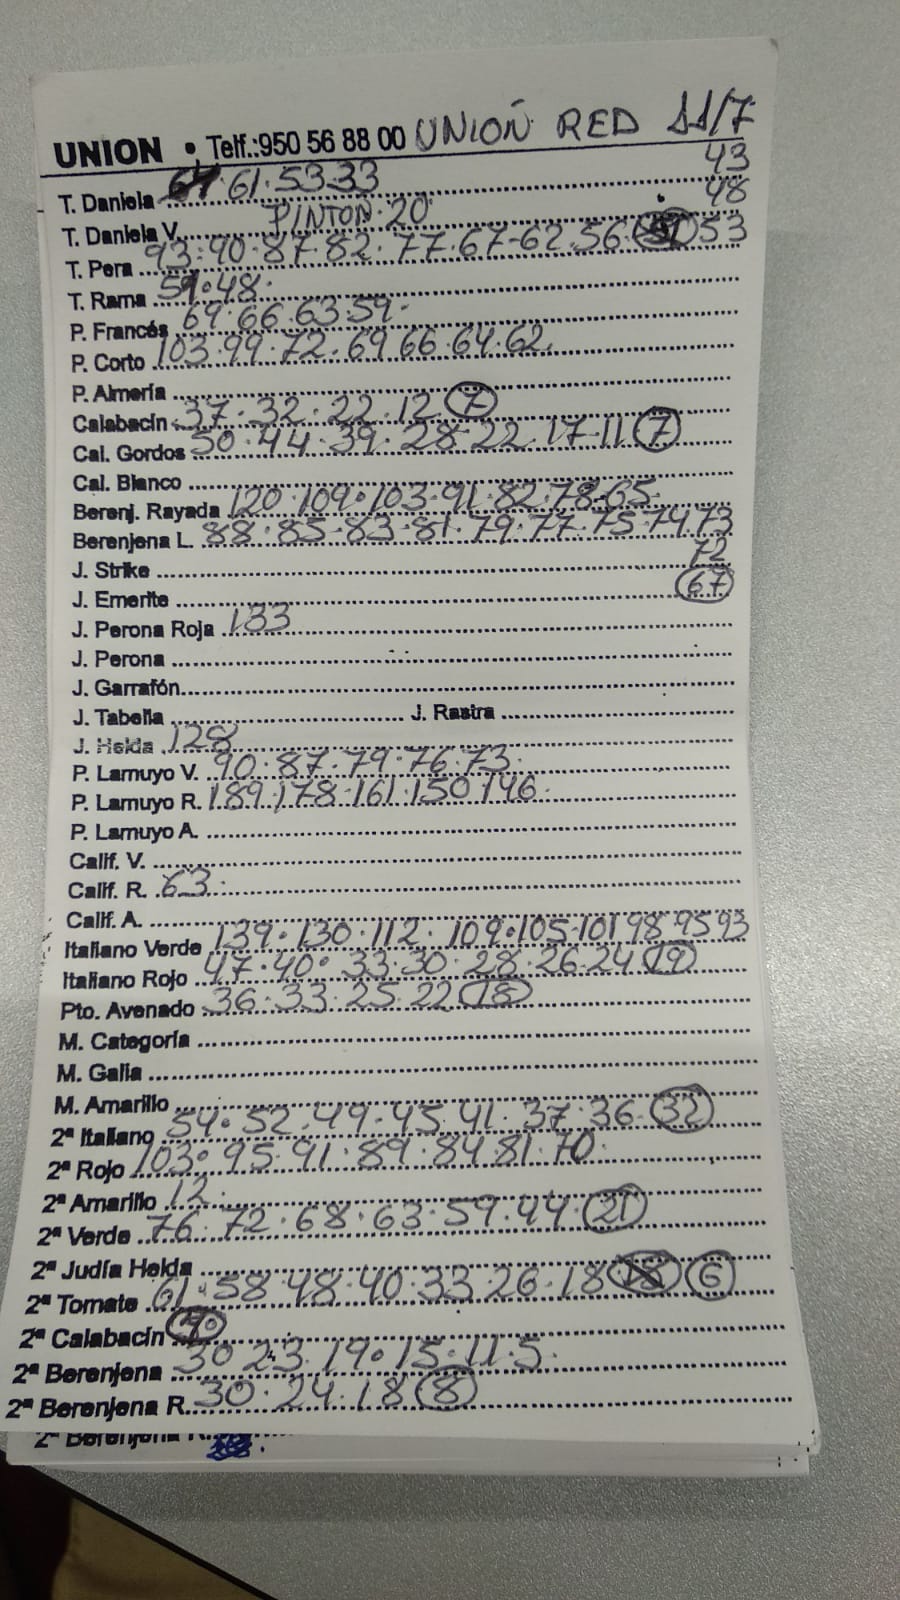 UNION • Telf.:950 56 88 00 UNIÓN RED 11/7
43
T. Daniela 61.53.33
48
T. Daniela V. PINTON.20
T. Pera 93.90.87.82.77.67-62.56. 53
T. Rama 59.48.
P. Francés 69.66.63.59.
P. Corto 103.99.72.69 66.64.62.
P. Almería
Calabacín 37.32.22.12 7
Cal. Gordos 50.44.39.28.22.17-11 7
Cal. Blanco
Berenj. Rayada 120.109.103.91.82.78-65.
Berenjena L. 88.85-83-81.79.77.75.74.73
72
J. Strike
67
J. Emerite
J. Perona Roja 133
J. Perona
J. Garrafón
J. Tabella J. Rastra
J. Helda 128
P. Lamuyo V. 90.87.79.76.73.
P. Lamuyo R. 189.178.161.150 146.
P. Lamuyo A.
Calif. V.
Calif. R. 63.
Calif. A.
Italiano Verde 139.130.112.109.105.101 98.95 93
Italiano Rojo 47.40.33.30.28.26.24 19
Pto. Avenado 36.33.25.22 18
M. Categoría
M. Galia
M. Amarillo
2ª Italiano 54.52.49.45.41.37.36. 32
2ª Rojo 103.95.91.89.84.81.70.
2ª Amarillo 12.
2ª Verde 76.72.68.63.59.44. 21
2ª Judía Helda
2ª Tomate 61.58.48.40.33.26.18 6
2ª Calabacín
2ª Berenjena 30 23.19.15.11.5.
2ª Berenjena R. 30.24.18 8
2ª Berenjena R.